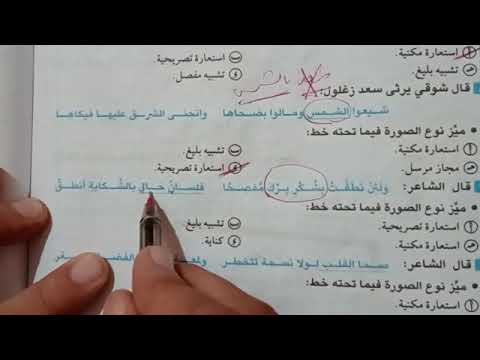 أ استعارة مكنية. ب استعارة تصريحية.
ج تشبيه بليغ. د تشبيه مفصل.
سعد بالشمس
قال شوقي يرثى سعد زغلول:
شيعوا الشمس ومالوا بضحاها وانحنى الشرق عليها فبكاها
• ميّز نوع الصورة فيما تحته خط:
ب تشبيه بليغ.
ج مجاز مرسل. د استعارة تصريحية.
قال الشاعر: ولئن نطقت بشكر برك مفصحًا فلسان حالي بالشكاية أنطق
• ميّز نوع الصورة فيما تحته خط:
أ استعارة تصريحية ب تشبيه بليغ.
ج استعارة مكنية د كناية.
قال الشاعر: صحا القلب لولا نسمة تتخطر
• ميّز نوع الصورة فيما تحته خط:
أ استعارة مكنية.